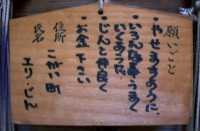 願いごと
・やせますように。
・いろんな事うまく
いくよう。
・じんと仲良く
・お金下さい
住所
こがい町
氏名
エリ・じん